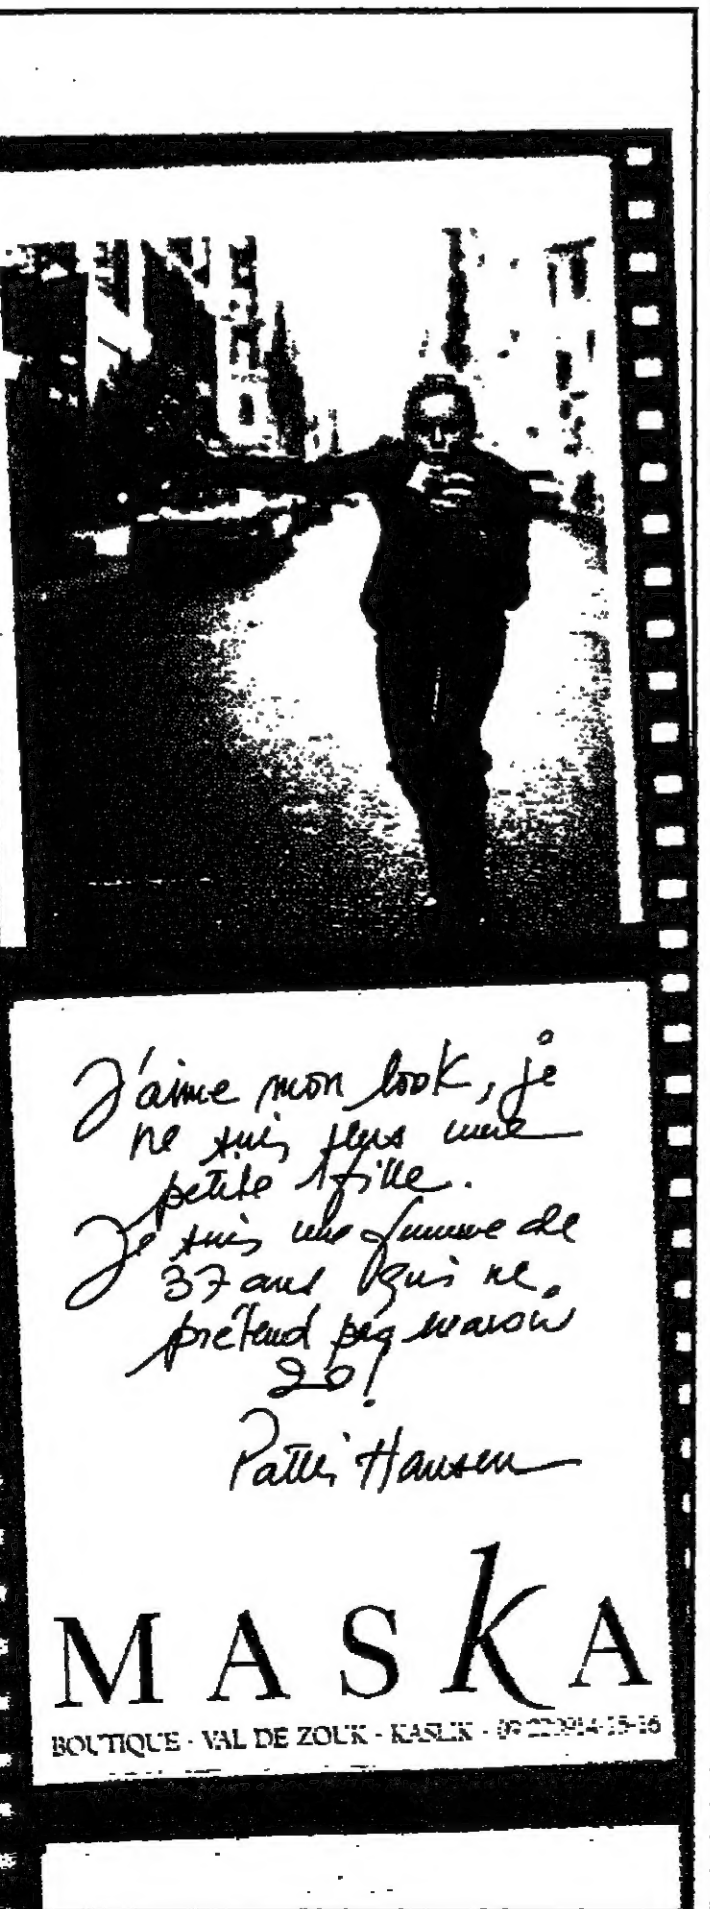 J'aime mon look, je
ne suis plus une
petite fille.
Je suis une femme de
37 ans qui ne
prétend pas en avoir
20!
Patti Hansen
MASKA
BOUTIQUE - VAL DE ZOUK - KASLIK - 09